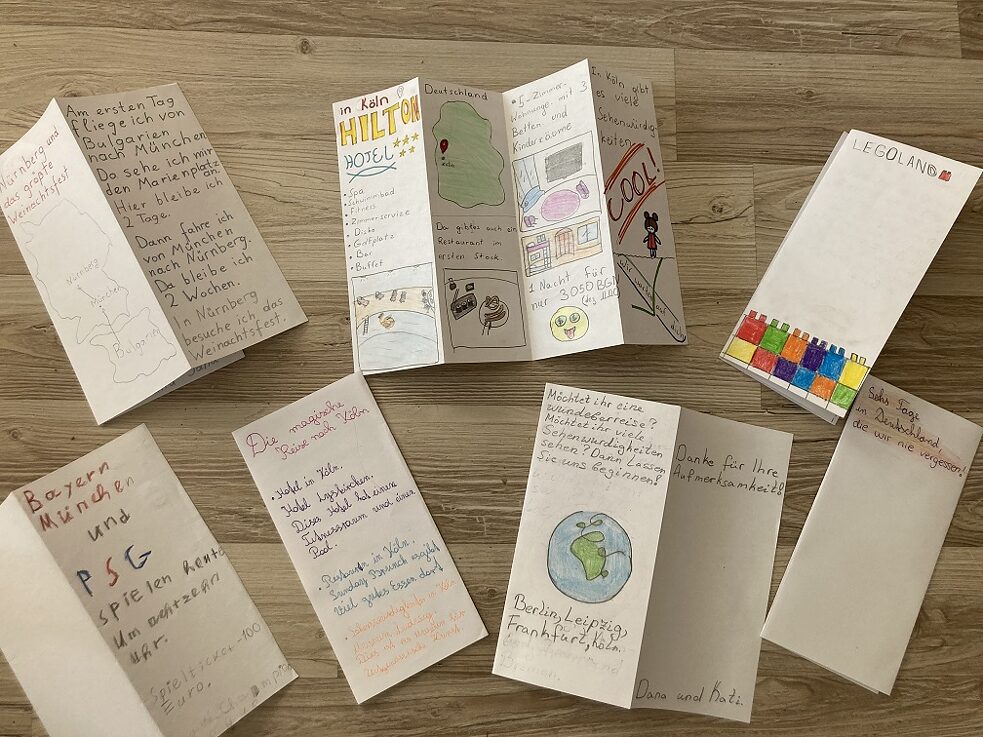 Nürnberg und
das größte
Weinachtsfest
Nürnberg
München
Bulgarien
Am ersten Tag
fliege ich von
Bulgarien
nach München
Da sehe ich mir
den Marienplatz
an
Hier bleibe ich
2 Tage.
Dann fahre ich
von München
nach Nürnberg.
Da bleibe ich
2 Wochen.
In Nürnberg
besuche ich das
Weinachtsfest.
in Köln
HILTON
HOTEL
• Spa
• Schwimmbad
• Fitness
• Zimmerservice
• Disko
• Golfplatz
• Bar
• Buffet
Deutschland
Köln
Da gibt es auch ein
Restaurant im
ersten Stock.
• 5-Zimmer-
Wohnunge mit 3
Betten und
Kinderräume
1 Nacht für
nur 3050 BGN
In Köln gibt
es viele
Sehenswürdig-
keiten
COOL!
Wir
auf
dich
LEGOLAND
Bayern
München
und
PSG
spielen heute
um achtzehn
uhr.
Spielticket -100
Euro.
Die magische
Reise nach Köln
• Hotel in Köln.
Hotel Lyskirchen.
Dises Hotel hat einen
Fitnessraum und einen
Pool.
• Restaurant in Köln.
Sunday Brunch es gibt
viel gutes Essen dort.
• Sehenswürdigkeiten in Köln
Museum Ludwig.
Dies ist ein Museum für
Möchtet ihr eine
wundeberreise?
Möchtet ihr viele
Sehenswurdigkeiten
sehen? Dann, Lassen
Sie uns beginnen!
Berlin, Leipzig,
Frankfurt, Köln.
Danke für Ihre
Aufmerksamheit!
Dana und Kati.
Sehs Tage
in Deutschland,
die wir nie vergessen!